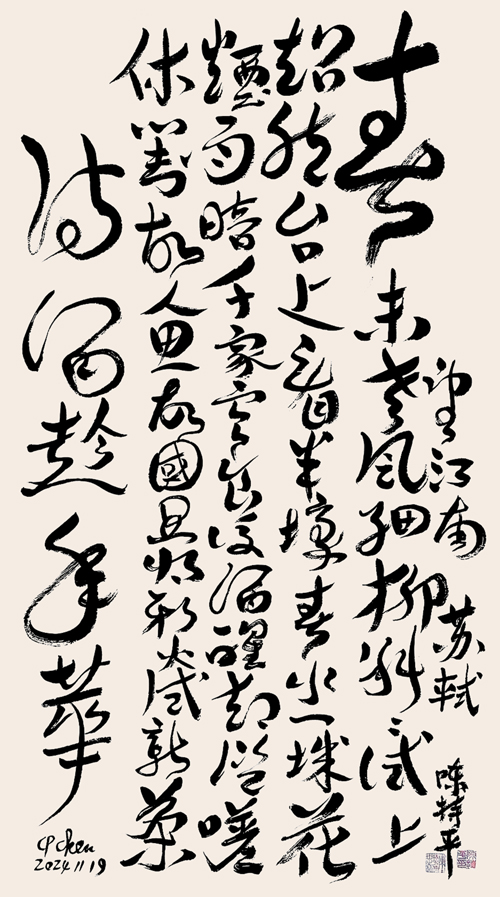 望江南 苏轼
春未老风细柳斜斜试上
超然台上看半壕春水一城花
煙雨暗千家寒食后酒醒却咨嗟
休对故人思故國且将新火试新茶
诗酒趁年華
陈持平
CP Chen
2024 11 19